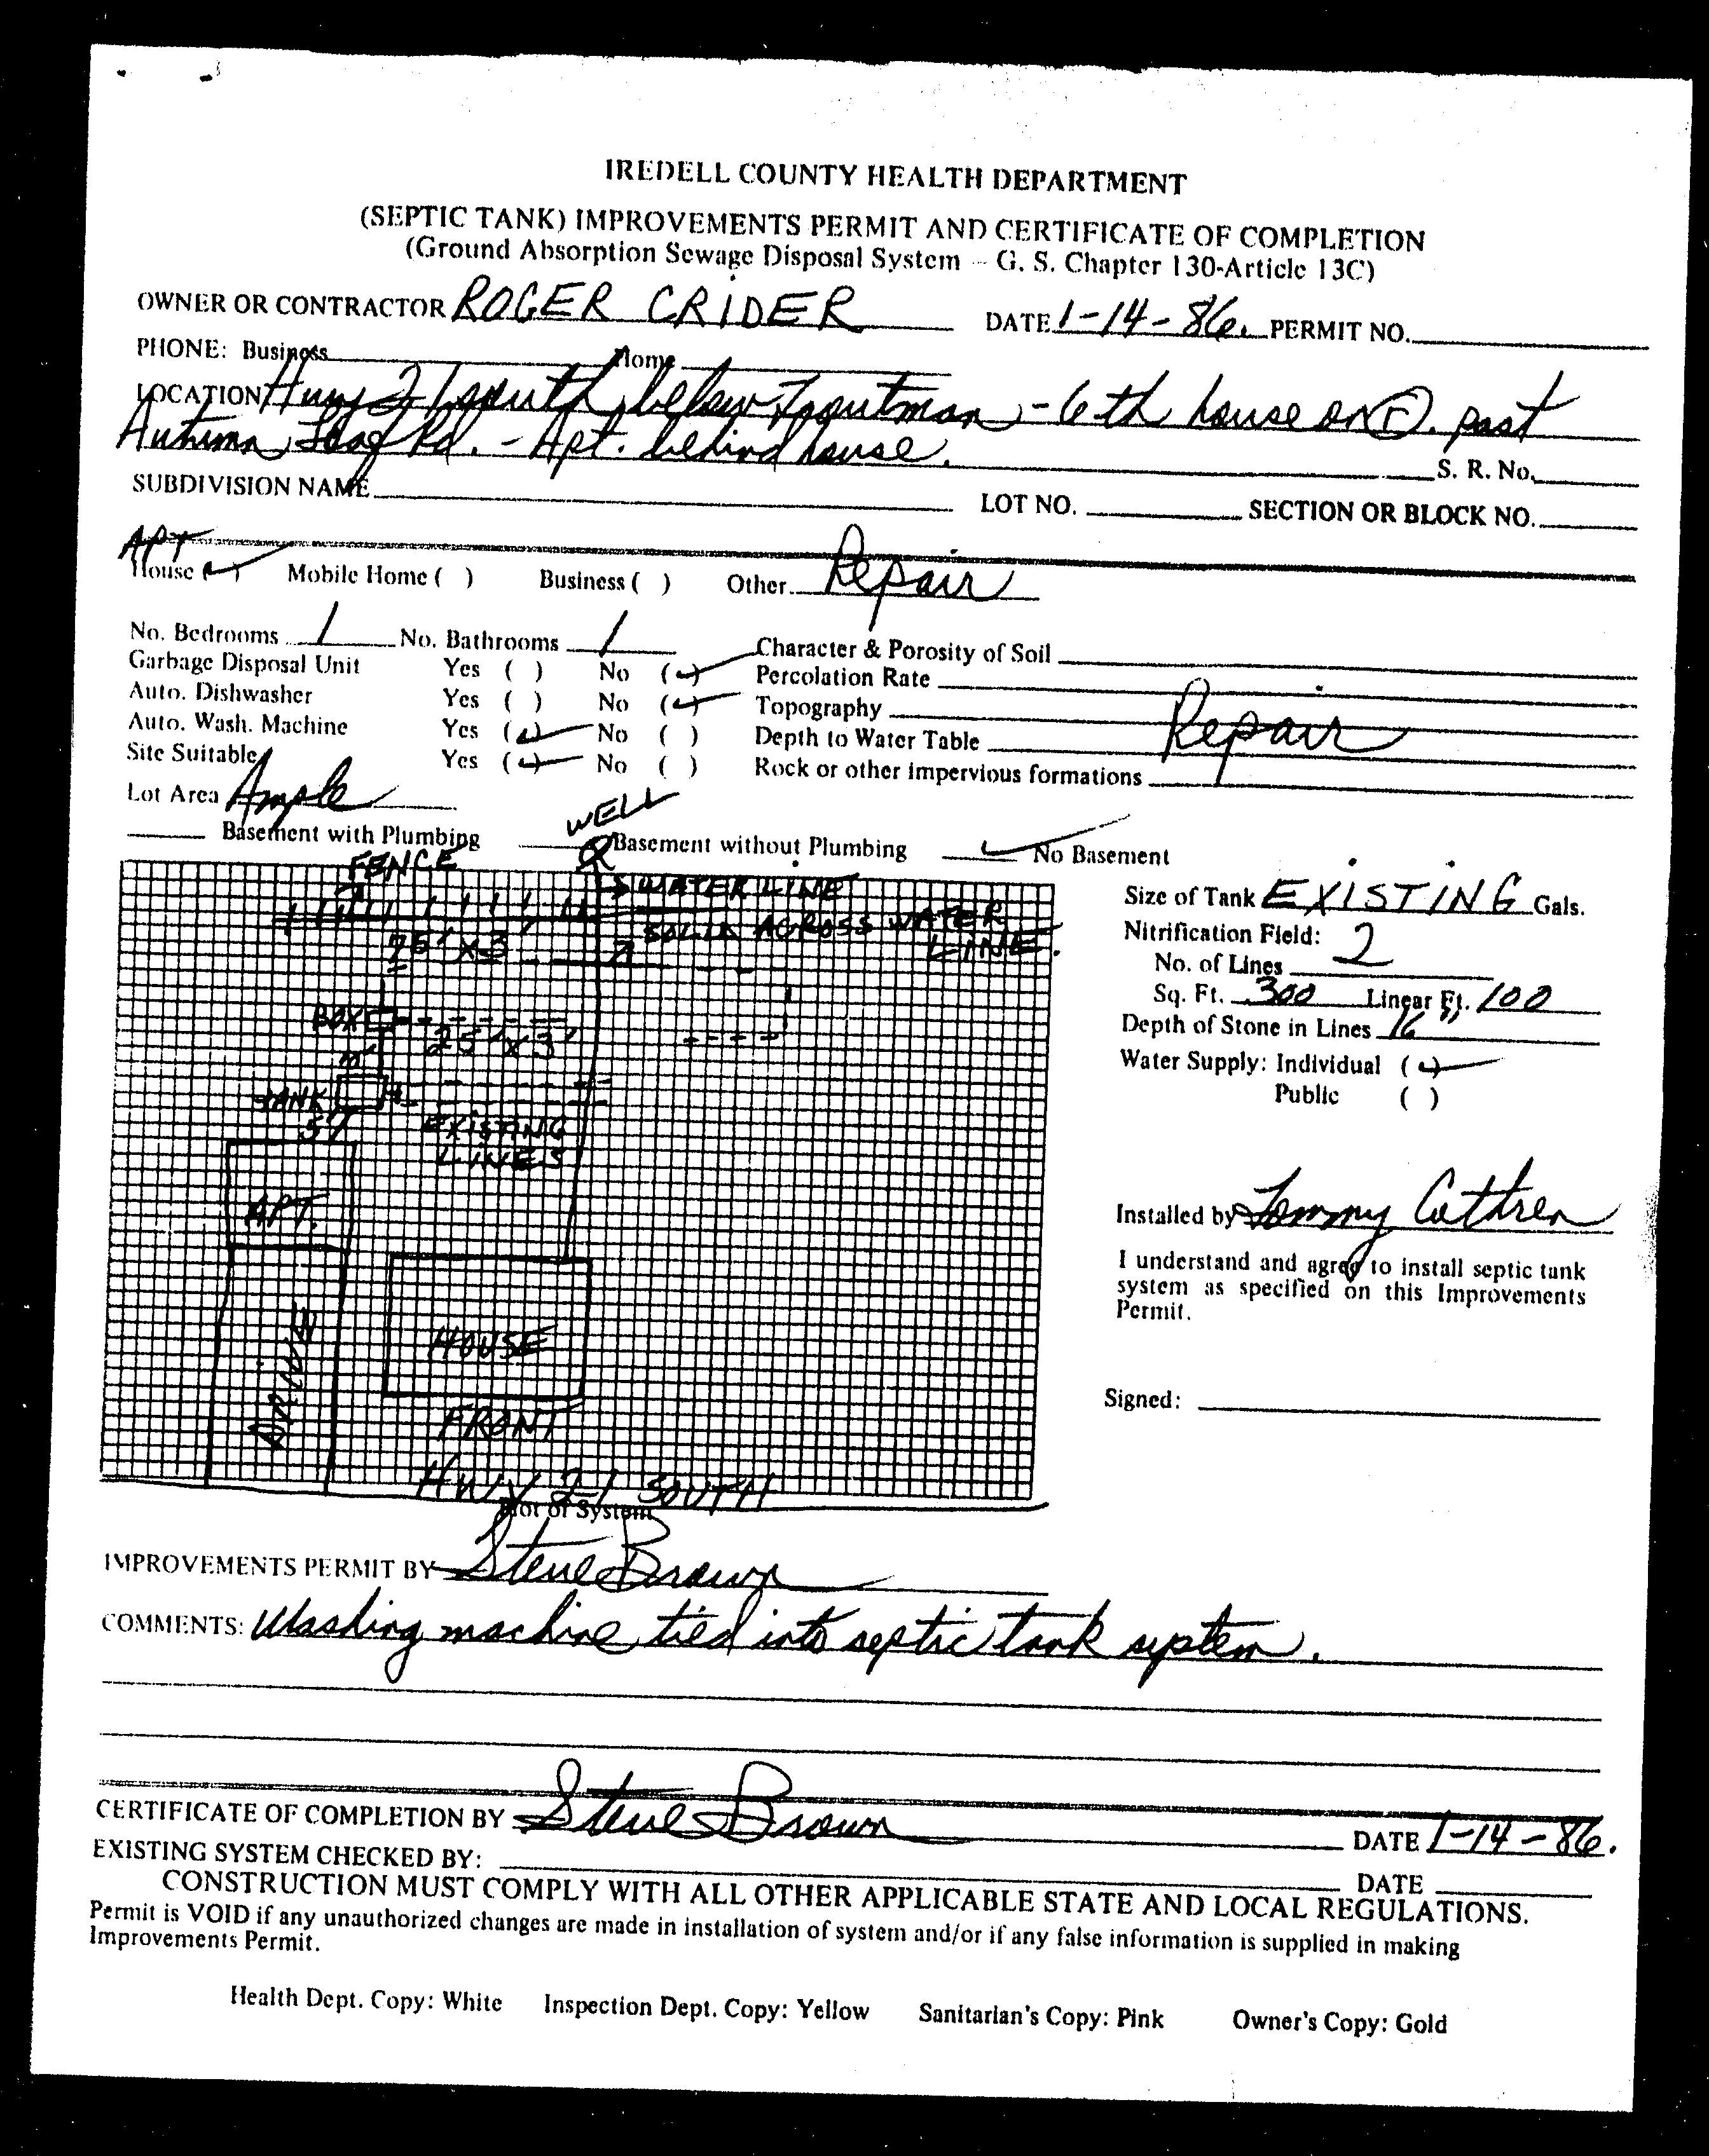 IREDELL COUNTY HEALTH DEPARTMENT
(SEPTIC TANK) IMPROVEMENTS PERMIT AND CERTIFICATE OF COMPLETION
(Ground Absorption Sewage Disposal System – G. S. Chapter 130-Article 13C)
OWNER OR CONTRACTOR ROGER CRIDER DATE 1-14-86. PERMIT NO.
PHONE: Business Home
LOCATION Hwy 21 south below Troutman - 6th house on r. past
Autumn Leaf Rd. - Apt. behind house. S. R. No.
SUBDIVISION NAME LOT NO. SECTION OR BLOCK NO.
APT
House (✓) Mobile Home ( ) Business ( ) Other Repair
No. Bedrooms 1 No. Bathrooms 1 Character & Porosity of Soil
Garbage Disposal Unit Yes ( ) No (✓) Percolation Rate
Auto. Dishwasher Yes ( ) No (✓) Topography
Auto. Wash. Machine Yes (✓) No ( ) Depth to Water Table Repair
Site Suitable Yes (✓) No ( ) Rock or other impervious formations
Lot Area Ample
WELL
Basement with Plumbing Basement without Plumbing ✓ No Basement
FENCE
WATER LINE
SOLID ACROSS WATER
LINE.
75' X 3'
BOX
25' X 3'
TANK
5'
EXISTING
LINES
APT.
HOUSE
DRIVE
FRONT
HWY 21 SOUTH
Plot of System
Size of Tank EXISTING Gals.
Nitrification Field:
No. of Lines 2
Sq. Ft. 300 Linear Ft. 100
Depth of Stone in Lines 16"
Water Supply: Individual (✓)
Public ( )
Installed by Tommy Cothren
I understand and agree to install septic tank
system as specified on this Improvements
Permit.
Signed:
IMPROVEMENTS PERMIT BY Steve Brown
COMMENTS: Washing machine tied into septic tank system.
CERTIFICATE OF COMPLETION BY Steve Brown DATE 1-14-86.
EXISTING SYSTEM CHECKED BY: DATE
CONSTRUCTION MUST COMPLY WITH ALL OTHER APPLICABLE STATE AND LOCAL REGULATIONS.
Permit is VOID if any unauthorized changes are made in installation of system and/or if any false information is supplied in making
Improvements Permit.
Health Dept. Copy: White Inspection Dept. Copy: Yellow Sanitarian's Copy: Pink Owner's Copy: Gold